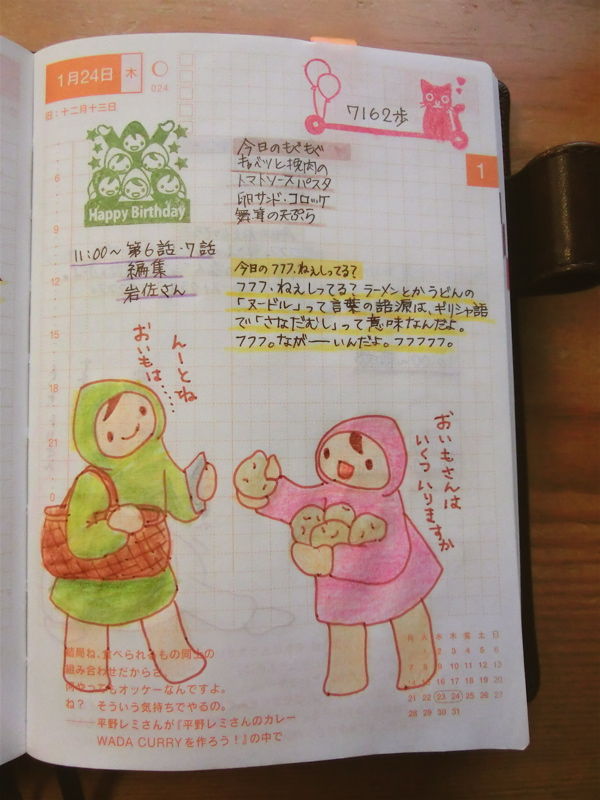 1月24日 木
024
旧:十二月十三日
7162歩
1
Happy Birthday
今日のもぐもぐ
キャベツと挽肉の
トマトソースパスタ
卵サンド・コロッケ
舞茸の天ぷら
11:00〜 第6話・7話
編集
岩佐さん
今日のフフフ、ねぇしってる?
フフフ、ねぇしってる? ラーメンとかうどんの
「ヌードル」って言葉の語源は、ギリシャ語
で「さなだむし」って意味なんだよ。
フフフ。ながーーいんだよ。フフフフフ。
6
9
12
15
18
21
0
んーとね
おいもは……
おいもさんは
いくついりますか
結局ね、食べられるもの同士の
組み合わせだからさ、
何やってもオッケーなんですよ。
ね? そういう気持ちでやるの。
——平野レミさんが『平野レミさんのカレー
WADA CURRYを作ろう!』の中で
月 火 水 木 金 土 日
1 2 3 4 5 6
7 8 9 10 11 12 13
14 15 16 17 18 19 20
21 22 23 24 25 26 27
28 29 30 31